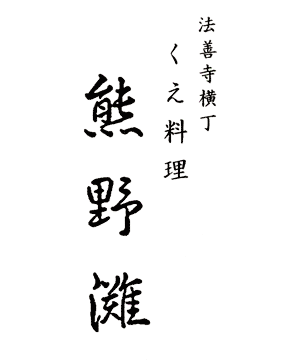 法善寺横丁
くえ料理
熊野灘